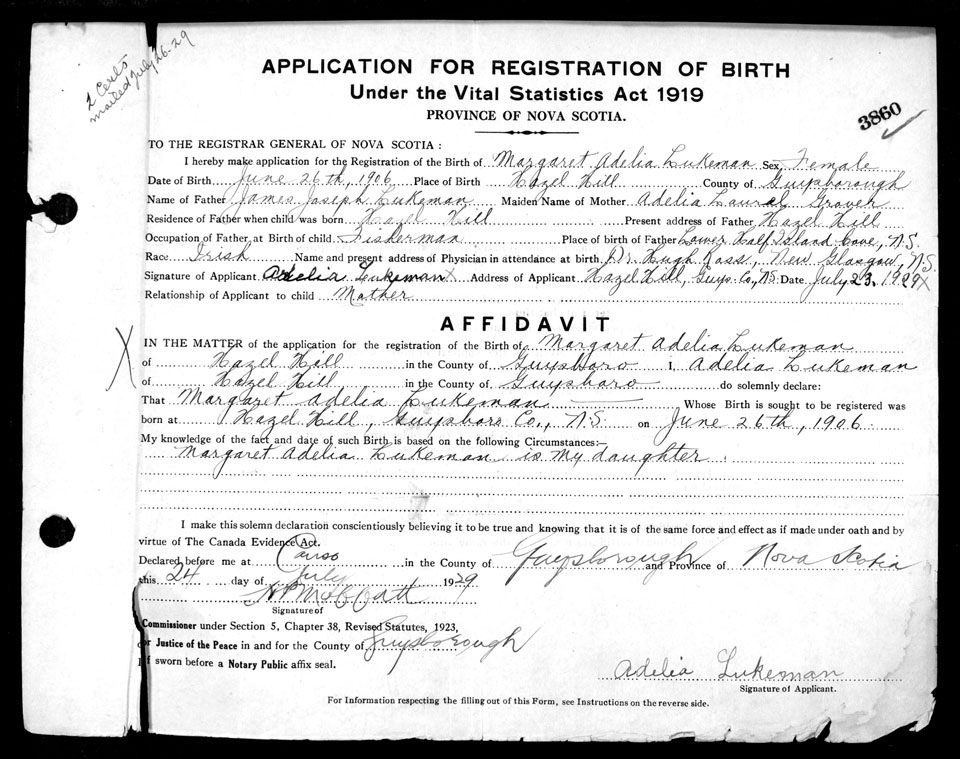 2 Certs
mailed July 26-29
APPLICATION FOR REGISTRATION OF BIRTH
Under the Vital Statistics Act 1919
PROVINCE OF NOVA SCOTIA.
3860
TO THE REGISTRAR GENERAL OF NOVA SCOTIA :
I hereby make application for the Registration of the Birth of Margaret Adelia Lukeman Sex Female
Date of Birth June 26th, 1906 Place of Birth Hazel Hill County of Guysborough
Name of Father James Joseph Lukeman Maiden Name of Mother Adelia Laural Grover
Residence of Father when child was born Hazel Hill Present address of Father Hazel Hill
Occupation of Father at Birth of child Fisherman Place of birth of Father Lower Half Island Cove, N.S.
Race Irish Name and present address of Physician in attendance at birth Dr. Hugh Ross, New Glasgow, N.S.
Signature of Applicant Adelia Lukeman X Address of Applicant Hazel Hill, Guys. Co., N.S. Date July 23, 1929 X
Relationship of Applicant to child Mother
AFFIDAVIT
X IN THE MATTER of the application for the registration of the Birth of Margaret Adelia Lukeman
of Hazel Hill in the County of Guysboro I, Adelia Lukeman
of Hazel Hill in the County of Guysboro do solemnly declare:
That Margaret Adelia Lukeman Whose Birth is sought to be registered was
born at Hazel Hill, Guysboro Co., N.S. on June 26th, 1906.
My knowledge of the fact and date of such Birth is based on the following Circumstances:—
Margaret Adelia Lukeman is my daughter.
I make this solemn declaration conscientiously believing it to be true and knowing that it is of the same force and effect as if made under oath and by
virtue of The Canada Evidence Act.
Declared before me at Canso in the County of Guysborough and Province of Nova Scotia
this 24 day of July 1929
Signature of
Commissioner under Section 5, Chapter 38, Revised Statutes, 1923,
or Justice of the Peace in and for the County of Guysborough
If sworn before a Notary Public affix seal.
Adelia Lukeman
Signature of Applicant.
For Information respecting the filling out of this Form, see Instructions on the reverse side.